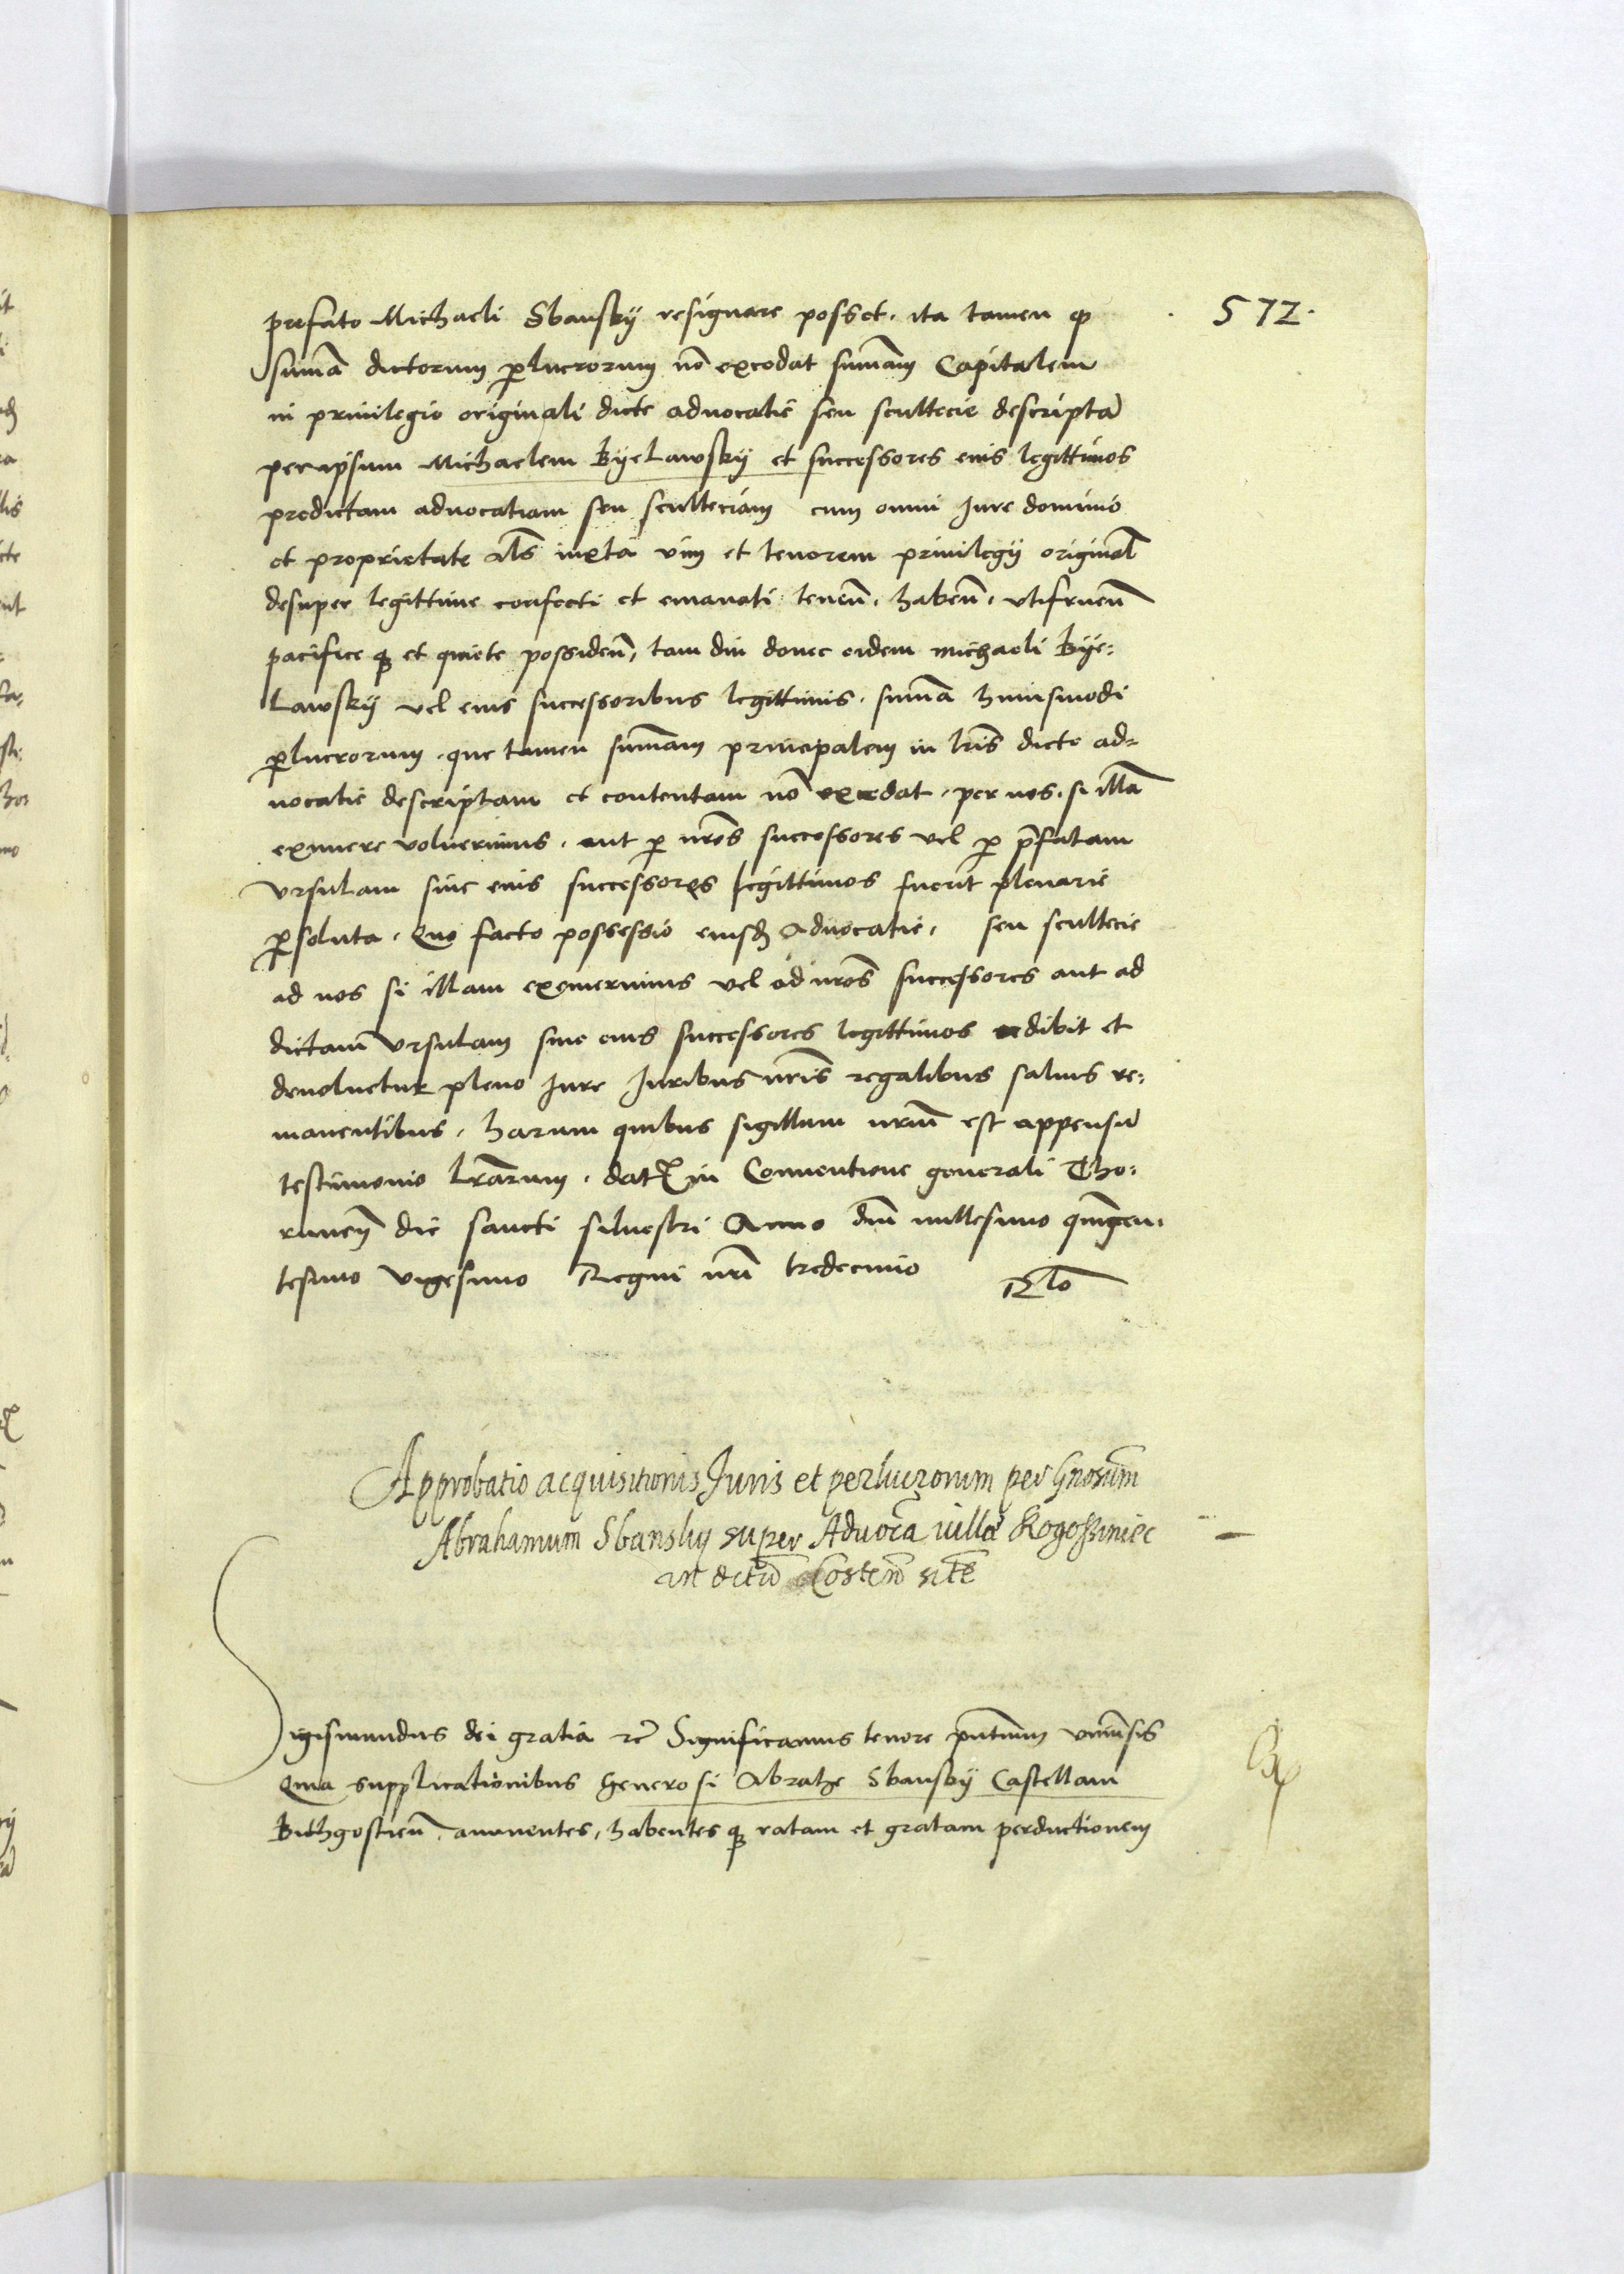 572.
prefato Michaeli Sbansky resignare posset. ita tamen ꝙ
sum̄a dictorum ꝑlucrorum nō excedat sum̄am Capitalem
in priuilegio originali dicte aduocatie seu scultecie descriptā
per ipsum Michaelem Byelawsky et successores eius legittimos
predictam aduocatiam seu sculteciam cum omni Iure dominio
et proprietate als̄ iuxta vim et tenorem priuilegÿ original̄
desuper legittime confecti et emanati teneñ. habeñ. vtifrueñ
pacifice qȝ et quiete possideñ, tam diu donec eidem Michaeli Bye:
Lawsky vel eius successoribus legittimis. sum̄a huiusmodi
ꝑlucrorum. que tamen sum̄am principalem in lr̄is dicte ad=
uocatie descriptam et contentam nō excedat. per nos. si illā
eximere voluerimus. aut ꝑ nr̄os successores vel ꝑ p̄fatam
Vrsulam siue eius successores legittimos fuerit plenarie
ꝑsoluta. Quo facto possessio eiusd Aduocatie. seu scultecie
ad nos si illam exemerimus vel ad nr̄os successores aut ad
dictam Vrsulam siue eius successores legittimos redibit et
deuoluetur pleno Iure Iuribus nr̄is regalibus saluis re:
manentibus. harum quibus sigillum nr̄um est appensū
testimonio lr̄arum. datꝭ in Conuentione generali Tho:
runeñ die sancti siluestri Anno dn̄i millesimo quingen.
tesimo vigesimo Regni nr̄i tredecimo Rl̄o
Approbatio acquisitionis Iuris et perlucrorum per Gnosum̄
Abrahamum Sbansky super Aduocā villæ Rogosziniec
in dictū Costeñ sitē
Sigismundus dei gratia rc̄ Significamus tenore pn̄tium vniūsis
Quia supplicationibus Generosi Abrahe Sbansky Castellani
Bithgostieñ. annuentes, habentes qȝ ratam et gratam perductionem